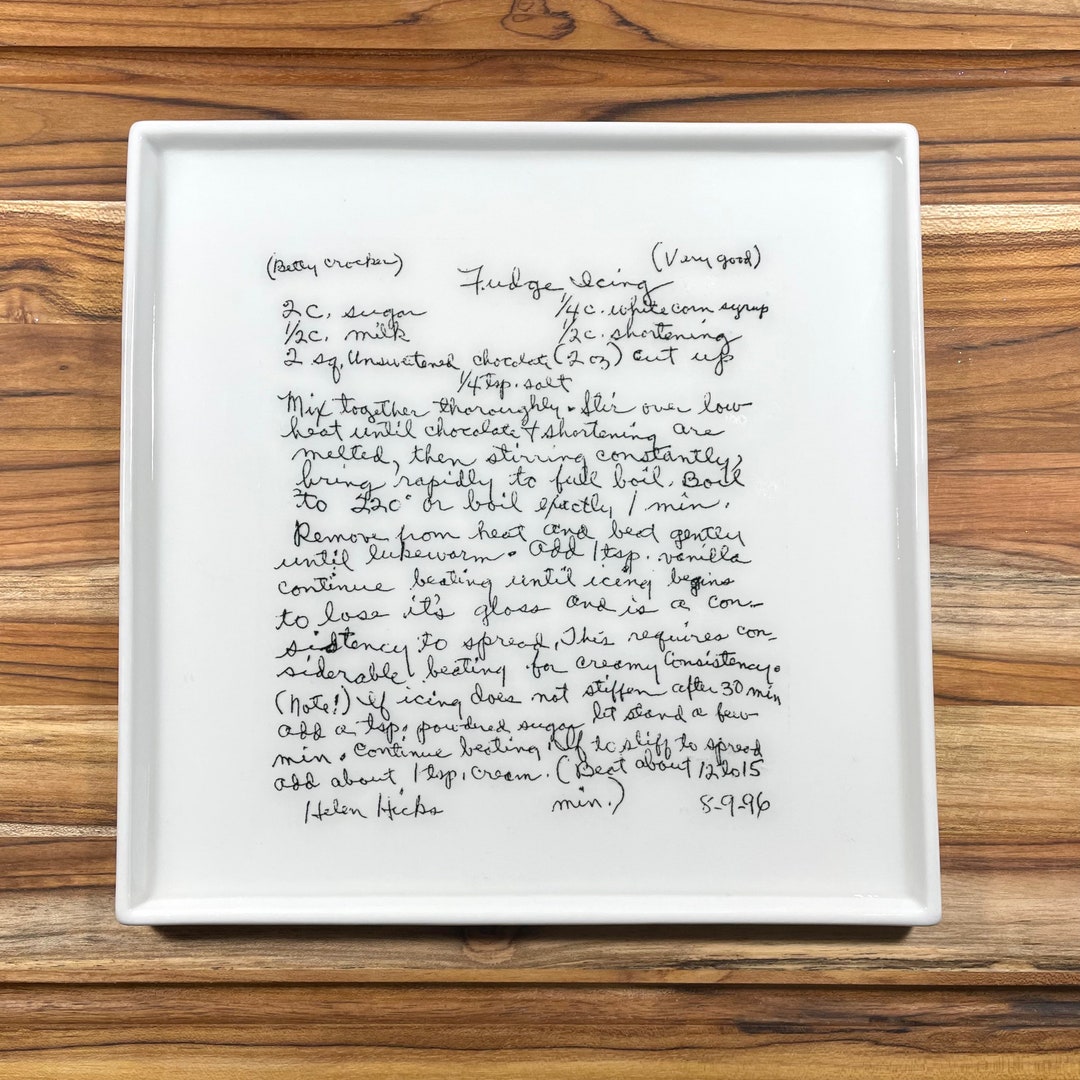 (Betty Crocker) (Very good)
Fudge Icing
2 c. sugar 1/4 c. white corn syrup
1/2 c. milk 1/2 c. shortening
2 sq. Unsweetened chocolate (2 oz) cut up
1/4 tsp. salt
Mix together thoroughly. Stir over low
heat until chocolate & shortening are
melted, then stirring constantly,
bring rapidly to full boil. Boil
to 220° or boil exactly 1 min.
Remove from heat and beat gently
until lukewarm. Add 1 tsp. vanilla
continue beating until icing begins
to lose it's gloss and is a con-
sistency to spread, This requires con-
siderable beating for creamy Consistency.
(Note!) If icing does not stiffen after 30 min
add a tsp. powdered sugar let stand a few
min. Continue beating. If to stiff to spread
add about 1 tsp. cream. (Beat about 12 to 15
Helen Hicks min.) 8-9-96